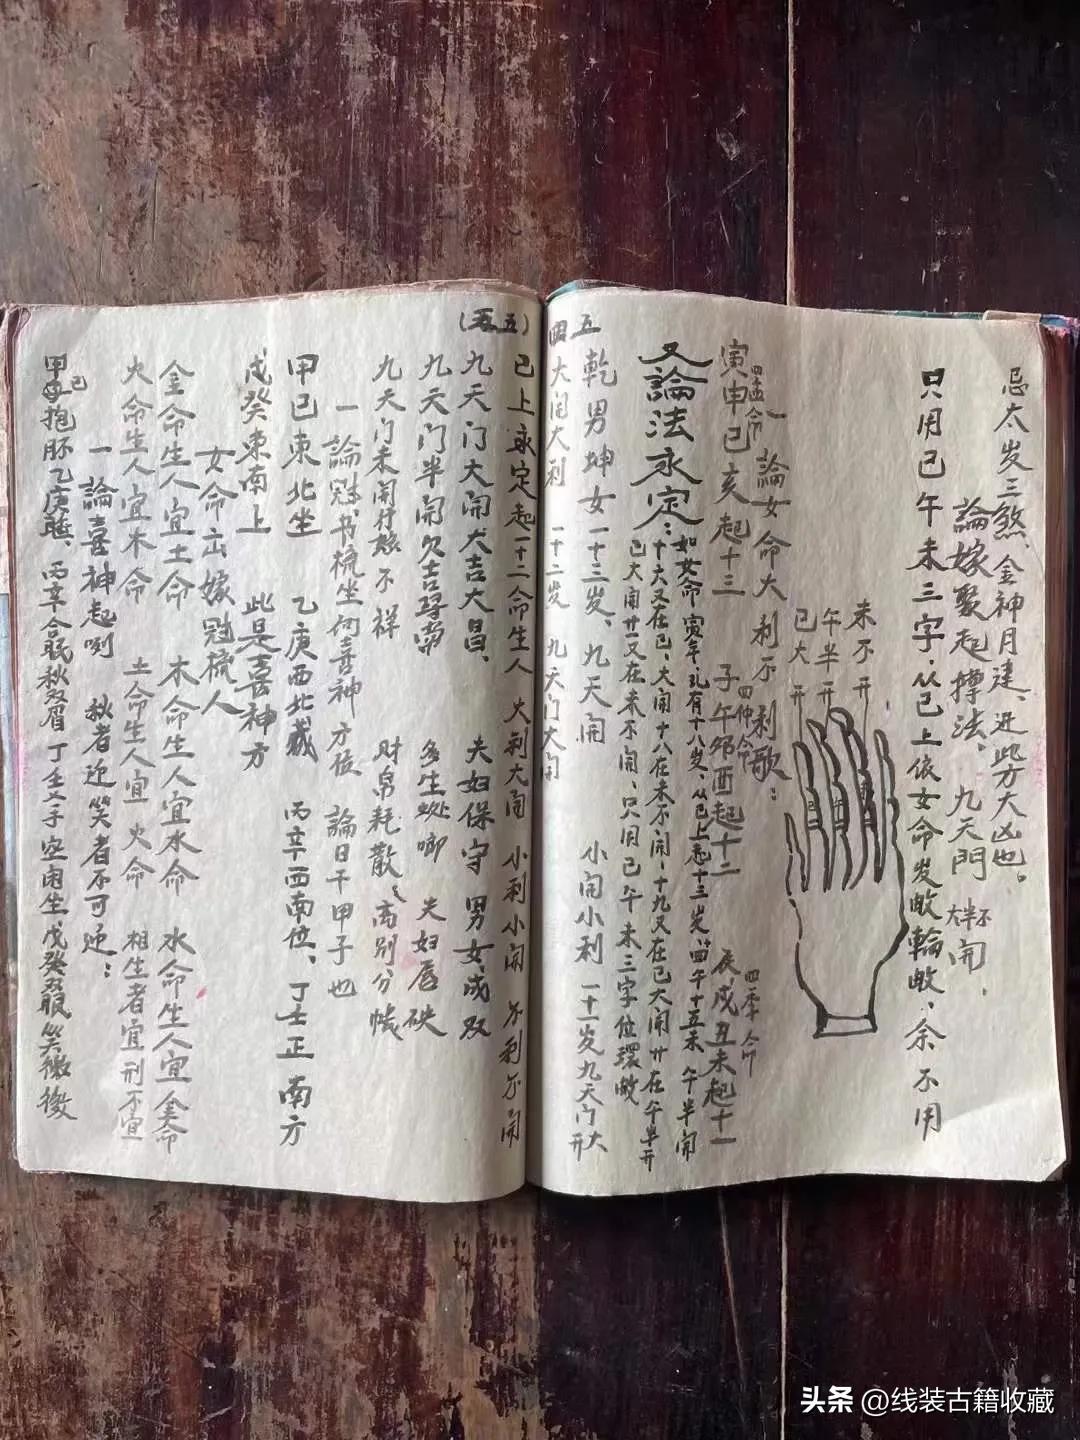 忌太岁三煞、金神月建、进此方大凶也。
論嫁娶起掙法、九天門大半不開.
只用巳午未三字、从巳上依女命发敂輪敂、余不用
未不开
午半开
巳大开
巳午未
一論女命大利不利歌:
四孟命 四仲命 四季命
寅申巳亥起十三 子午卯酉起十二 辰戌丑未起十一
又論法永定:
如女命寅年、礼有十八岁、从巳上起十三岁、十四午十五未 午半開
十六又在巳、大開十八在未不開、十九又在巳大開廿在午半开
巳大開廿一又在未不開、只用巳午未三字位環敂
五四
乾男坤女一十三岁、九天開 小開小利 一十一岁九天门大开
大開大利 一十二岁 九天门大開
(五五)
已上永定起一十二命生人 大利大開 小利小開 不利不開
九天门大開大吉大昌、夫妇保守男女成双
九天门半開欠吉尋常 多生 唧 夫妇唇
九天门未開行嫁不祥 财帛耗散、离别分
一論冠书梳坐向喜神方位 論日干甲子也
甲巳東北坐 乙庚西北藏 丙辛西南位、丁壬正南方
戊癸東南上 此是喜神方
女命出嫁冠梳人
金命生人宜土命 木命生人宜水命 水命生人宜金命
火命生人宜木命 土命生人宜火命 相生者宜刑不宜
一論喜神起例 愁者迎笑者不可迎:
甲己抱胚乙庚 、丙辛合眠愁双眉 丁壬 手空 生、戊癸 笑微微
头条 @线装古籍收藏